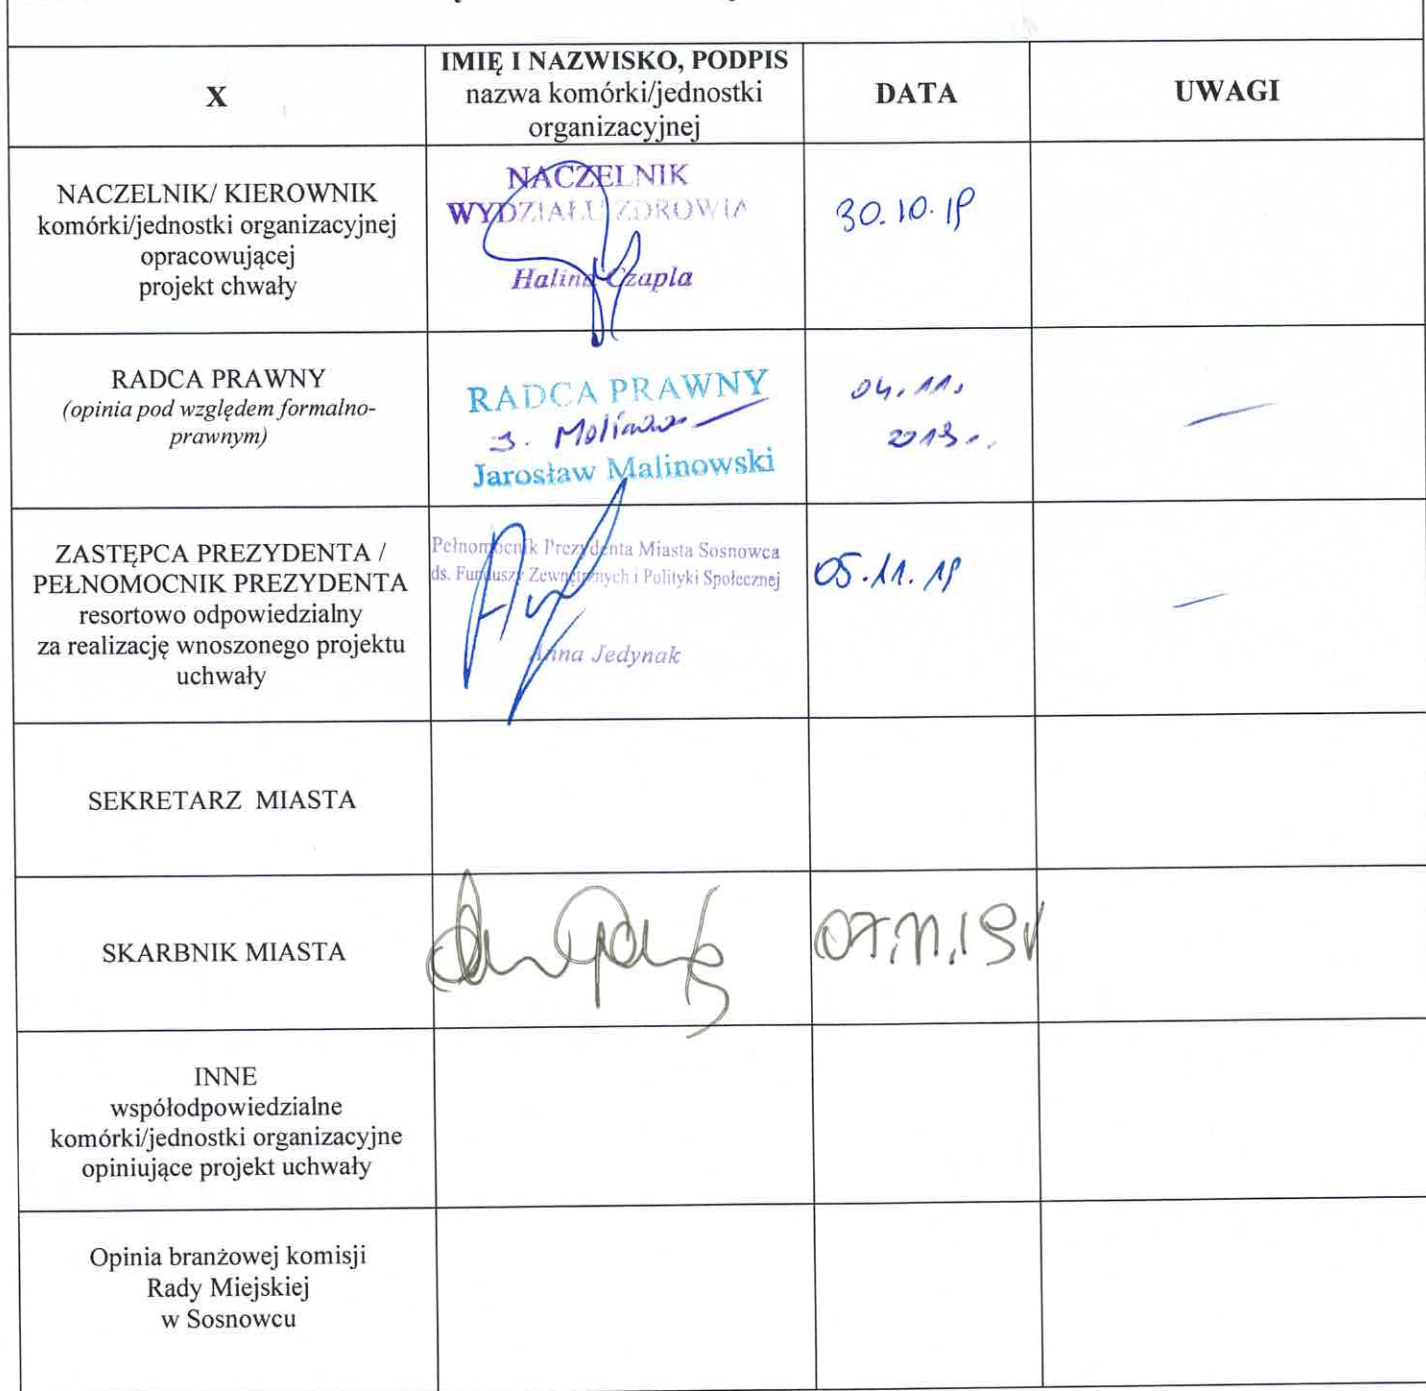 X
IMIĘ I NAZWISKO, PODPIS
nazwa komórki/jednostki
organizacyjnej
DATA
UWAGI
NACZELNIK/ KIEROWNIK
komórki/jednostki organizacyjnej
opracowującej
projekt chwały
NACZELNIK
WYDZIAŁU ZDROWIA
Halina Czapla
30.10.19
RADCA PRAWNY
(opinia pod względem formalno-
prawnym)
RADCA PRAWNY
Jarosław Malinowski
04.11.
2019
ZASTĘPCA PREZYDENTA /
PEŁNOMOCNIK PREZYDENTA
resortowo odpowiedzialny
za realizację wnoszonego projektu
uchwały
Pełnomocnik Prezydenta Miasta Sosnowca
ds. Funduszy Zewnętrznych i Polityki Społecznej
Anna Jedynak
05.11.19
SEKRETARZ MIASTA
SKARBNIK MIASTA
07.11.19
INNE
współodpowiedzialne
komórki/jednostki organizacyjne
opiniujące projekt uchwały
Opinia branżowej komisji
Rady Miejskiej
w Sosnowcu